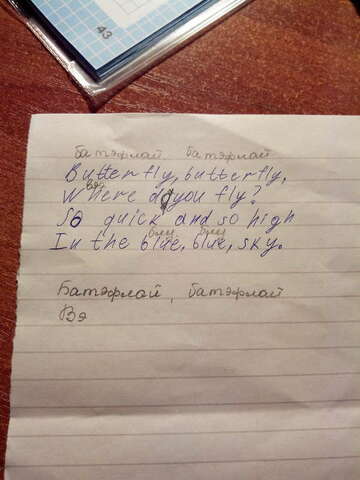 43
батэфлай, батэфлай
Butterfly, butterfly,
вэа
Where do you fly?
So quick and so high
блу блу
In the blue, blue, sky.
Батэфлай, батэфлай
Вэ